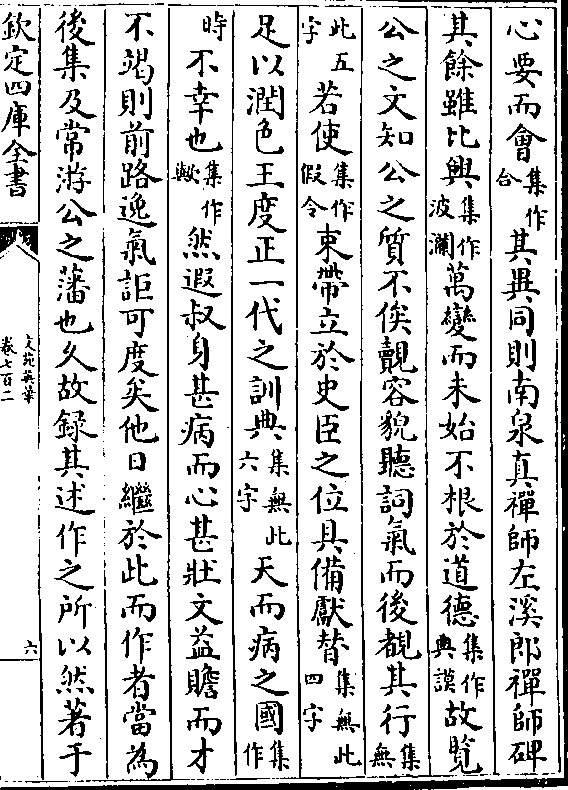 心要而會集作合其異同則南泉真禪師左溪郎禪師碑
其餘雖比興集作波瀾萬變而未始不根於道德集作典謨故覽
公之文知公之質不俟覿容貌聽詞氣而後覩其行集無
此五字若使集作假令束帶立於史臣之位具備獻替集無此四字
足以潤色王度正一代之訓典集無此六字天而病之國集作
時不幸也集作歟然遐叔身甚病而心甚壯文益贍而才
不竭則前路逸氣詎可度矣他日繼於此而作者當為
後集及常游公之藩也久故錄其述作之所以然著于
欽定四庫全書
文苑英華
卷七百二
六